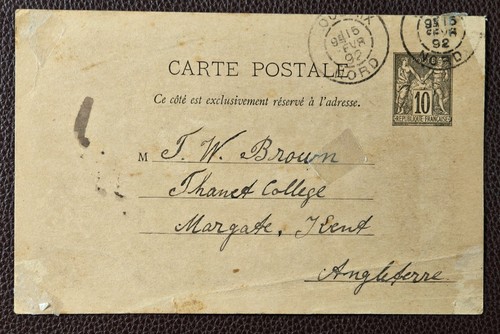 CARTE POSTALE
Ce côté est exclusivement réservé à l'adresse.
M T. W. Brown
Thanet College
Margate, Kent
Angleterre
15
FEVR
92
NORD
15
FEVR
92
NORD
10
REPUBLIQUE FRANCAISE